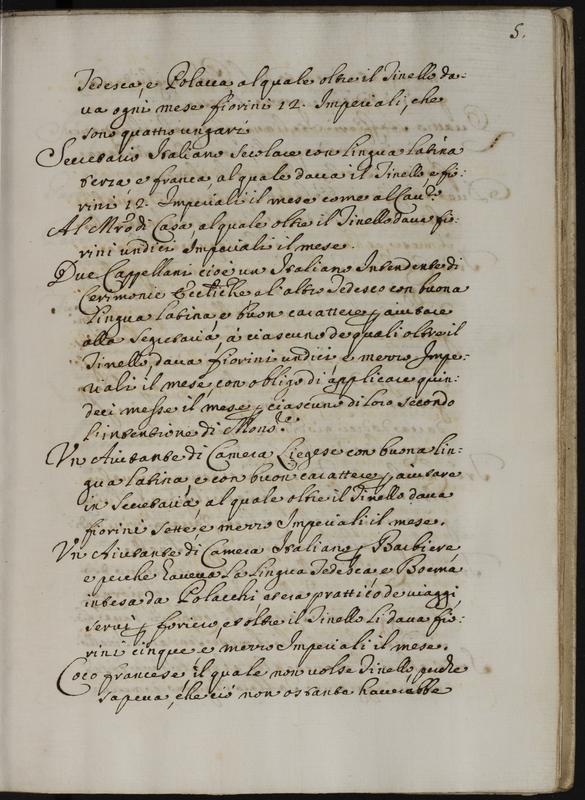 5.
Tedesca e Polacca al quale oltre il Tinello da-
ua ogni mese fiorini 12. Imperiali, che
sono quattro ungari
Secretario Italiano Secolare con lingua latina
terza e franca al quale daua il Tinello e fio-
rini 12. Imperiali il mese come al Cau.re
Al Mro di Casa al quale oltre il Tinello daua fio-
rini undici Imperiali il mese.
Due Cappellani cioè un Italiano Intendente di
Cerimonie Eccl.che e l'altro Tedesco con buona
lingua latina e buon carattere p aiutare
alla Segretaria, à ciascuno de quali oltre il
Tinello, daua fiorini undici e mezzo Impe-
riali il mese, con obligo di applicare quin-
deci messe il mese p ciascuno di loro secondo
l'intentione di Mons.re
Un Aiutante di Camera Liegese con buona lin-
gua latina, e con buon carattere p aiutare
in Secretaria, al quale oltre il Tinello daua
fiorini sette e mezzo Imperiali il mese.
Un Aiutante di Camera Italiano p Barbiere
e perche haueua la lingua Tedesca e Boema
intesa da Polacchi et era prattico de uiaggi
seruì p foriero, et oltre il Tinello li daua fio-
rini cinque e mezzo Imperiali il mese.
Coco francese il quale non uolse Tinello perche
sapeua, che ciò non ostante hauerebbe